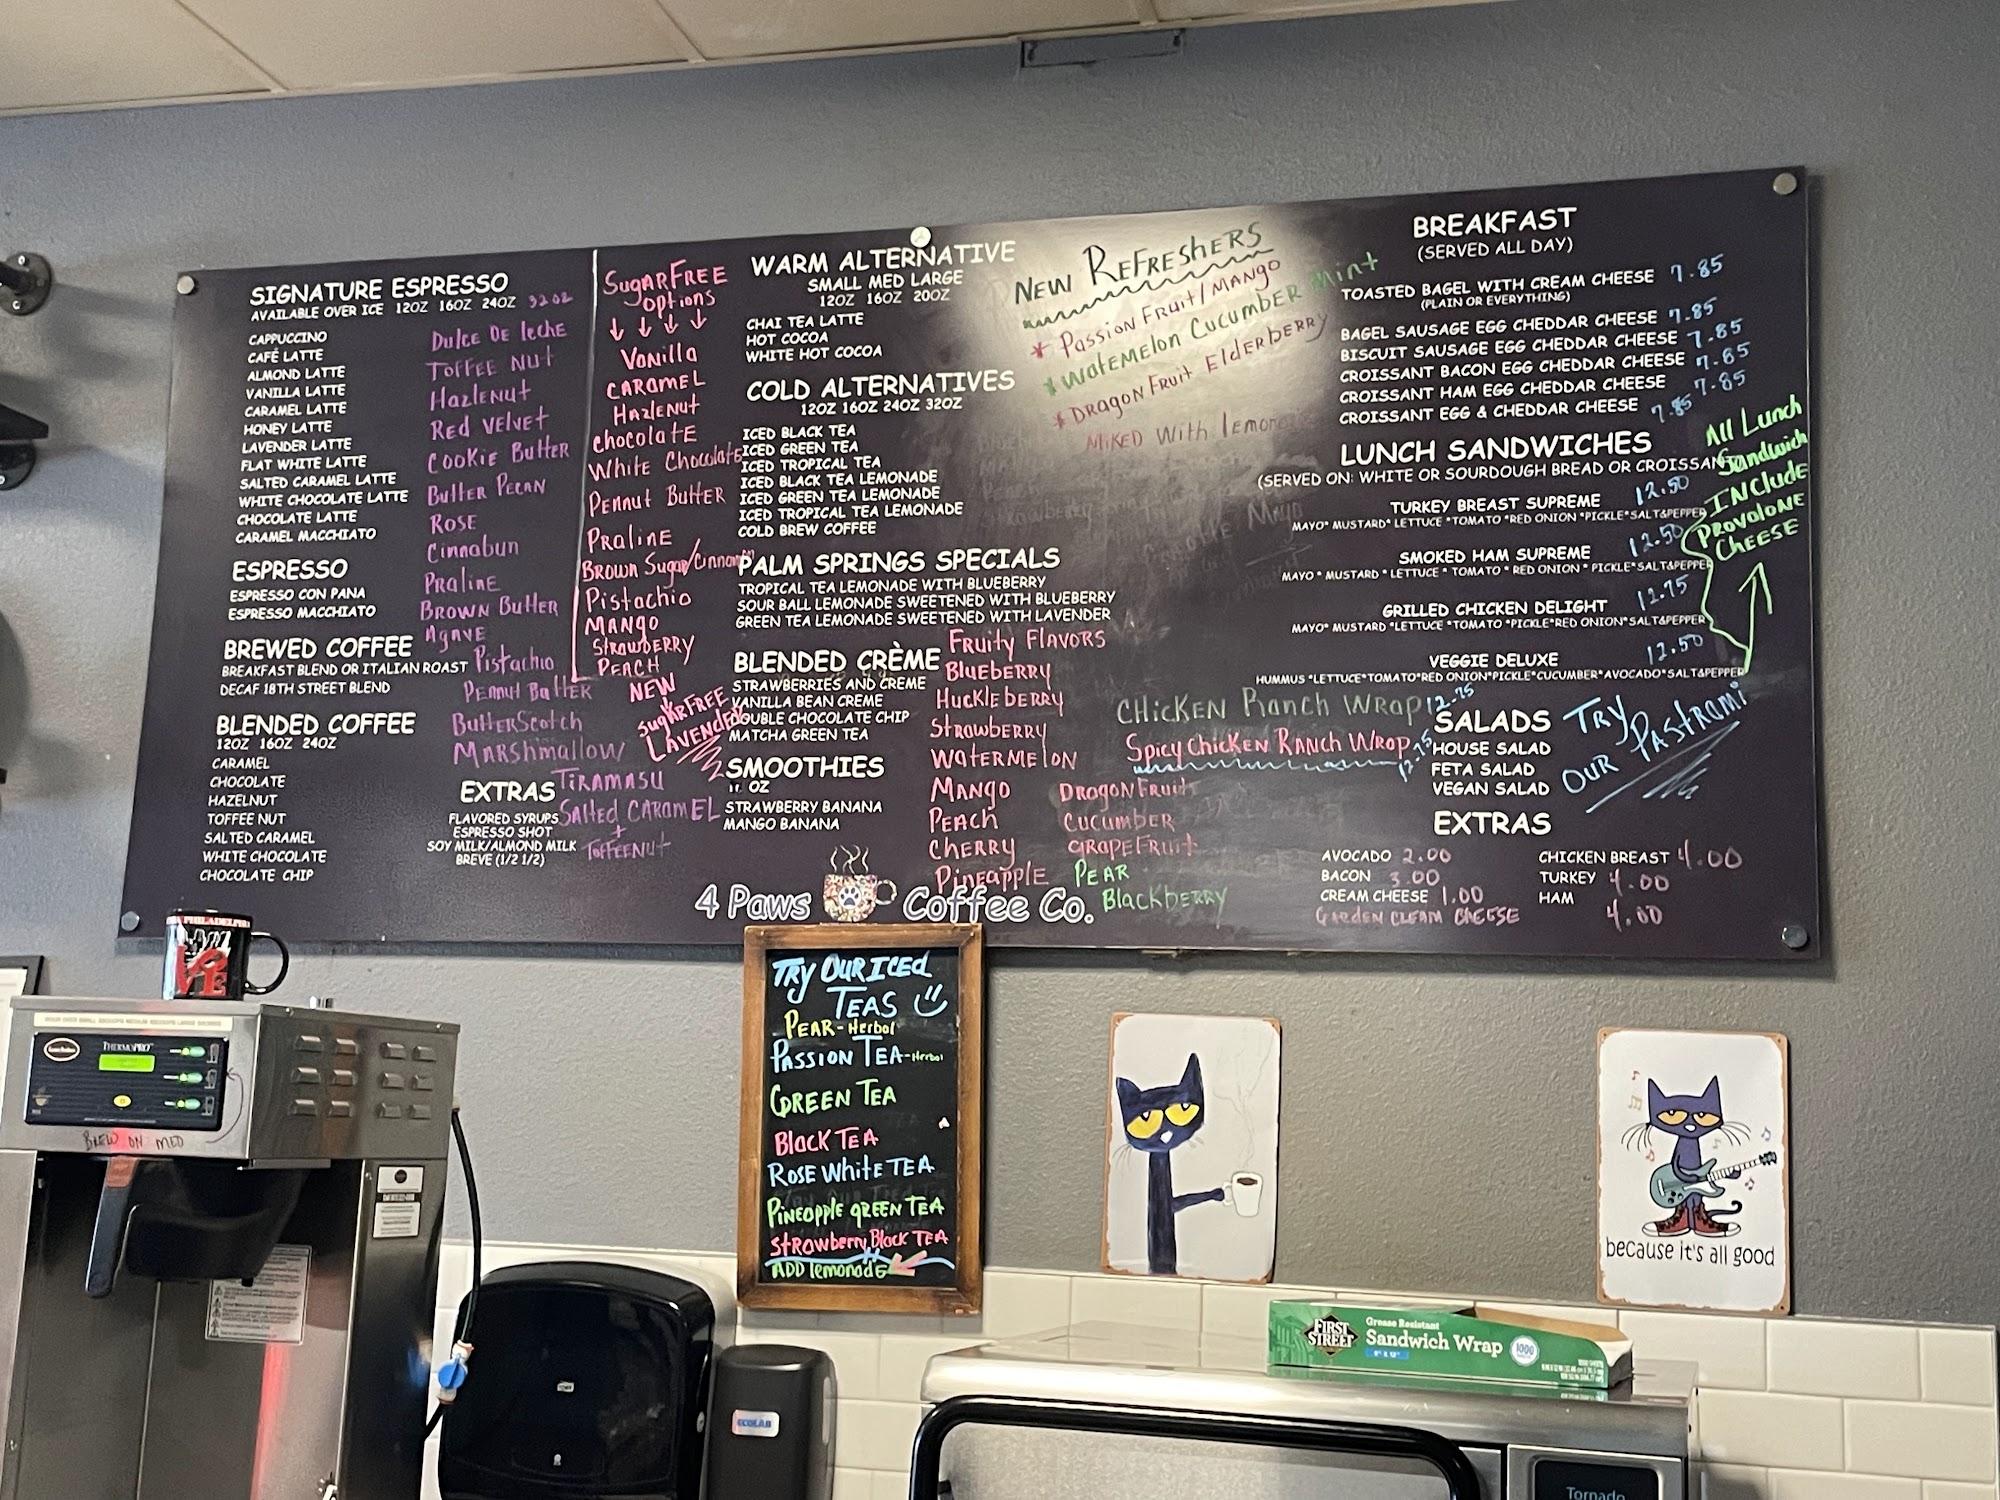 SIGNATURE ESPRESSO
AVAILABLE OVER ICE 12OZ 16OZ 24OZ 32OZ
CAPPUCCINO
CAFÉ LATTE
ALMOND LATTE
VANILLA LATTE
CARAMEL LATTE
HONEY LATTE
LAVENDER LATTE
FLAT WHITE LATTE
SALTED CARAMEL LATTE
WHITE CHOCOLATE LATTE
CHOCOLATE LATTE
CARAMEL MACCHIATO
ESPRESSO
ESPRESSO CON PANA
ESPRESSO MACCHIATO
BREWED COFFEE
BREAKFAST BLEND OR ITALIAN ROAST
DECAF 18TH STREET BLEND
BLENDED COFFEE
12OZ 16OZ 24OZ
CARAMEL
CHOCOLATE
HAZELNUT
TOFFEE NUT
SALTED CARAMEL
WHITE CHOCOLATE
CHOCOLATE CHIP
Dulce De leche
Toffee Nut
Hazlenut
Red Velvet
Cookie Butter
Butter Pecan
Rose
Cinnabun
Praline
Brown Butter
Agave
Pistachio
Pennut Butter
ButterScotch
Marshmallow
Tiramasu
Salted Caramel
+
ToffeeNut
EXTRAS
FLAVORED SYRUPS
ESPRESSO SHOT
SOY MILK/ALMOND MILK
BREVE (1/2 1/2)
SugarFree
options
Vanilla
Caramel
Hazlenut
chocolate
White Chocolate
Pennut Butter
Praline
Brown Sugar/Cinnamon
Pistachio
Mango
Strawberry
Peach
NEW
SugarFree
Lavender
WARM ALTERNATIVE
SMALL MED LARGE
12OZ 16OZ 20OZ
CHAI TEA LATTE
HOT COCOA
WHITE HOT COCOA
COLD ALTERNATIVES
12OZ 16OZ 24OZ 32OZ
ICED BLACK TEA
ICED GREEN TEA
ICED TROPICAL TEA
ICED BLACK TEA LEMONADE
ICED GREEN TEA LEMONADE
ICED TROPICAL TEA LEMONADE
COLD BREW COFFEE
PALM SPRINGS SPECIALS
TROPICAL TEA LEMONADE WITH BLUEBERRY
SOUR BALL LEMONADE SWEETENED WITH BLUEBERRY
GREEN TEA LEMONADE SWEETENED WITH LAVENDER
BLENDED CRÈME
STRAWBERRIES AND CREME
VANILLA BEAN CREME
DOUBLE CHOCOLATE CHIP
MATCHA GREEN TEA
SMOOTHIES
OZ
STRAWBERRY BANANA
MANGO BANANA
Fruity Flavors
Blueberry
Huckleberry
Strawberry
Watermelon
Mango
Peach
Cherry
Pineapple
DragonFruit
Cucumber
Grapefruit
Pear
Blackberry
New Refreshers
* Passion Fruit/Mango
* Watemelon Cucumber Mint
* Dragon Fruit Elderberry
Mixed With lemonade
Chicken Ranch Wrap 12.75
Spicy Chicken Ranch Wrap 12.75
BREAKFAST
(SERVED ALL DAY)
TOASTED BAGEL WITH CREAM CHEESE 7.85
(PLAIN OR EVERYTHING)
BAGEL SAUSAGE EGG CHEDDAR CHEESE 7.85
BISCUIT SAUSAGE EGG CHEDDAR CHEESE 7.85
CROISSANT BACON EGG CHEDDAR CHEESE 7.85
CROISSANT HAM EGG CHEDDAR CHEESE 7.85
CROISSANT EGG & CHEDDAR CHEESE 7.85
LUNCH SANDWICHES
(SERVED ON: WHITE OR SOURDOUGH BREAD OR CROISSANT
TURKEY BREAST SUPREME 12.50
MAYO* MUSTARD* LETTUCE *TOMATO *RED ONION *PICKLE*SALT&PEPPER
SMOKED HAM SUPREME 12.50
MAYO * MUSTARD * LETTUCE * TOMATO * RED ONION * PICKLE*SALT&PEPPER
GRILLED CHICKEN DELIGHT 12.75
MAYO* MUSTARD *LETTUCE *TOMATO *PICKLE*RED ONION*SALT&PEPPER
VEGGIE DELUXE 12.50
HUMMUS *LETTUCE*TOMATO*RED ONION*PICKLE*CUCUMBER*AVOCADO*SALT&PEPPER
All Lunch
Sandwich
INClude
Provolone
Cheese
SALADS
HOUSE SALAD
FETA SALAD
VEGAN SALAD
Try
our Pastrami
EXTRAS
AVOCADO 2.00
BACON 3.00
CREAM CHEESE 1.00
Garden Cream Cheese
CHICKEN BREAST 4.00
TURKEY 4.00
HAM 4.00
4 Paws Coffee Co.
Try Our Iced
Teas
Pear-Herbal
Passion Tea-Herbal
Green Tea
Black Tea
Rose White Tea
Pineapple green Tea
Strawberry Black Tea
ADD lemonade
PHILADELPHIA
LOVE
THERMOPRO
BREW ON MED
because it's all good
FIRST STREET
Grease Resistant
Sandwich Wrap
1000
ECOLAB
Tornado